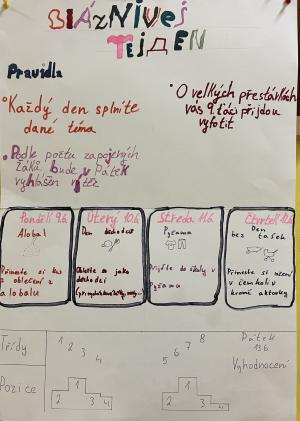 BláZNiVej
TEjDEN
Pravidla
•Každý den splníte
dané téma
•O velkých přestávkách
vás 9.ťáci přijdou
vyfotit
•Podle počtu zapojených
žáků bude v Pátek
vyhlášen vítěz
Pondělí 9.6.
Alobal
Přineste si kus
z oblečení z
alobalu
Úterý 10.6.
Den důchodců
Oblečte se jako
důchodci
Středa 11.6.
Pyžama
Přijďte do školy v
Pyžamu
Čtvrtek 12.6.
Den
bez tašek
Přineste si učení
v čemkoliv
kromě aktovky
Třídy
1 2 3 4
5 6 7 8
Pátek
13.6.
Vyhodnocení
Pozice
1
2 3 4
1
2 3 4